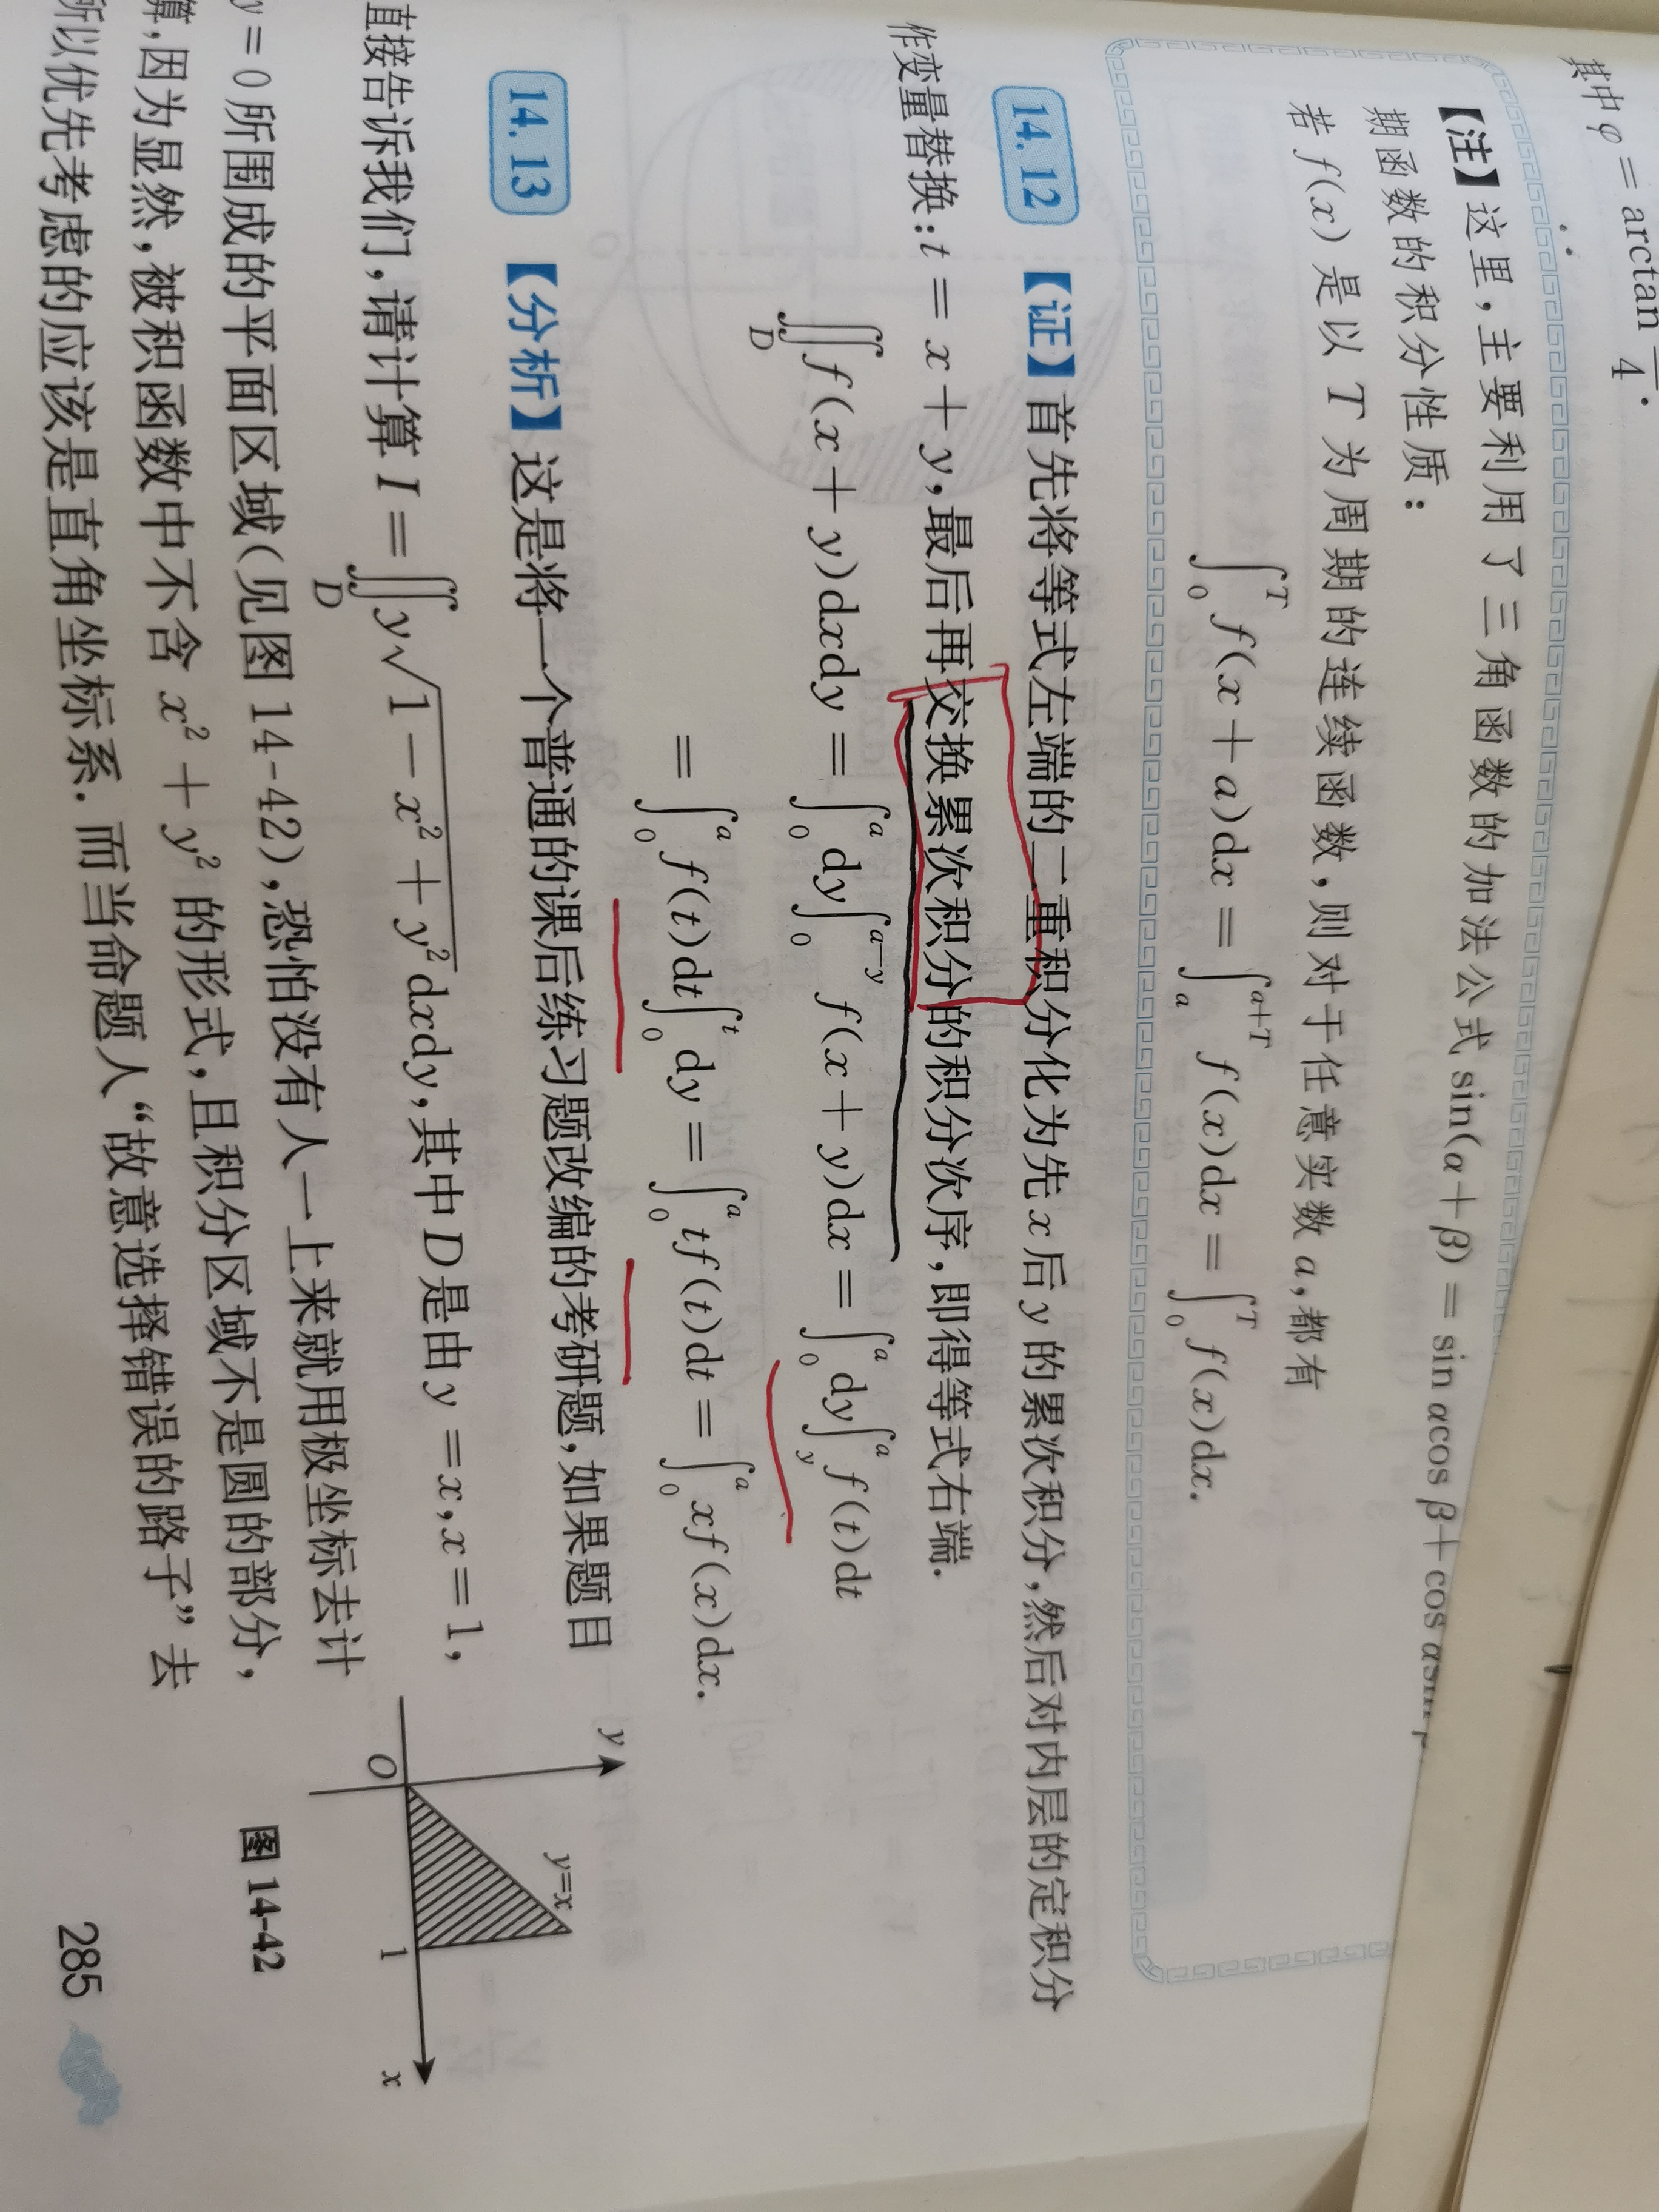 其中 φ = arctan — 4 .
【注】这里,主要利用了三角函数的加法公式 sin(α+β) = sin αcos β+cos αsin
期函数的积分性质:
若 f(x) 是以 T 为周期的连续函数,则对于任意实数 a,都有
∫₀ᵀ f(x+a)dx = ∫ₐᵃ⁺ᵀ f(x)dx = ∫₀ᵀ f(x)dx.
14.12 【证】首先将等式左端的二重积分化为先 x 后 y 的累次积分,然后对内层的定积分
作变量替换:t = x + y,最后再交换累次积分的积分次序,即得等式右端.
∬_D f(x+y)dxdy = ∫_0^a dy∫_0^{a-y} f(x+y)dx = ∫_0^a dy∫_y^a f(t)dt
= ∫_0^a f(t)dt∫_0^t dy = ∫_0^a tf(t)dt = ∫_0^a xf(x)dx.
14.13 【分析】这是将一个普通的课后练习题改编的考研题,如果题目
直接告诉我们,请计算 I = ∬_D y√(1-x²+y²)dxdy,其中 D 是由 y = x,x = 1,
y = 0 所围成的平面区域(见图 14-42),恐怕没有人一上来就用极坐标去计
算,因为显然,被积函数中不含 x² + y² 的形式,且积分区域不是圆的部分,
所以优先考虑的应该是直角坐标系. 而当命题人“故意选择错误的路子”去
y
y=x
O
1
x
图 14-42
285